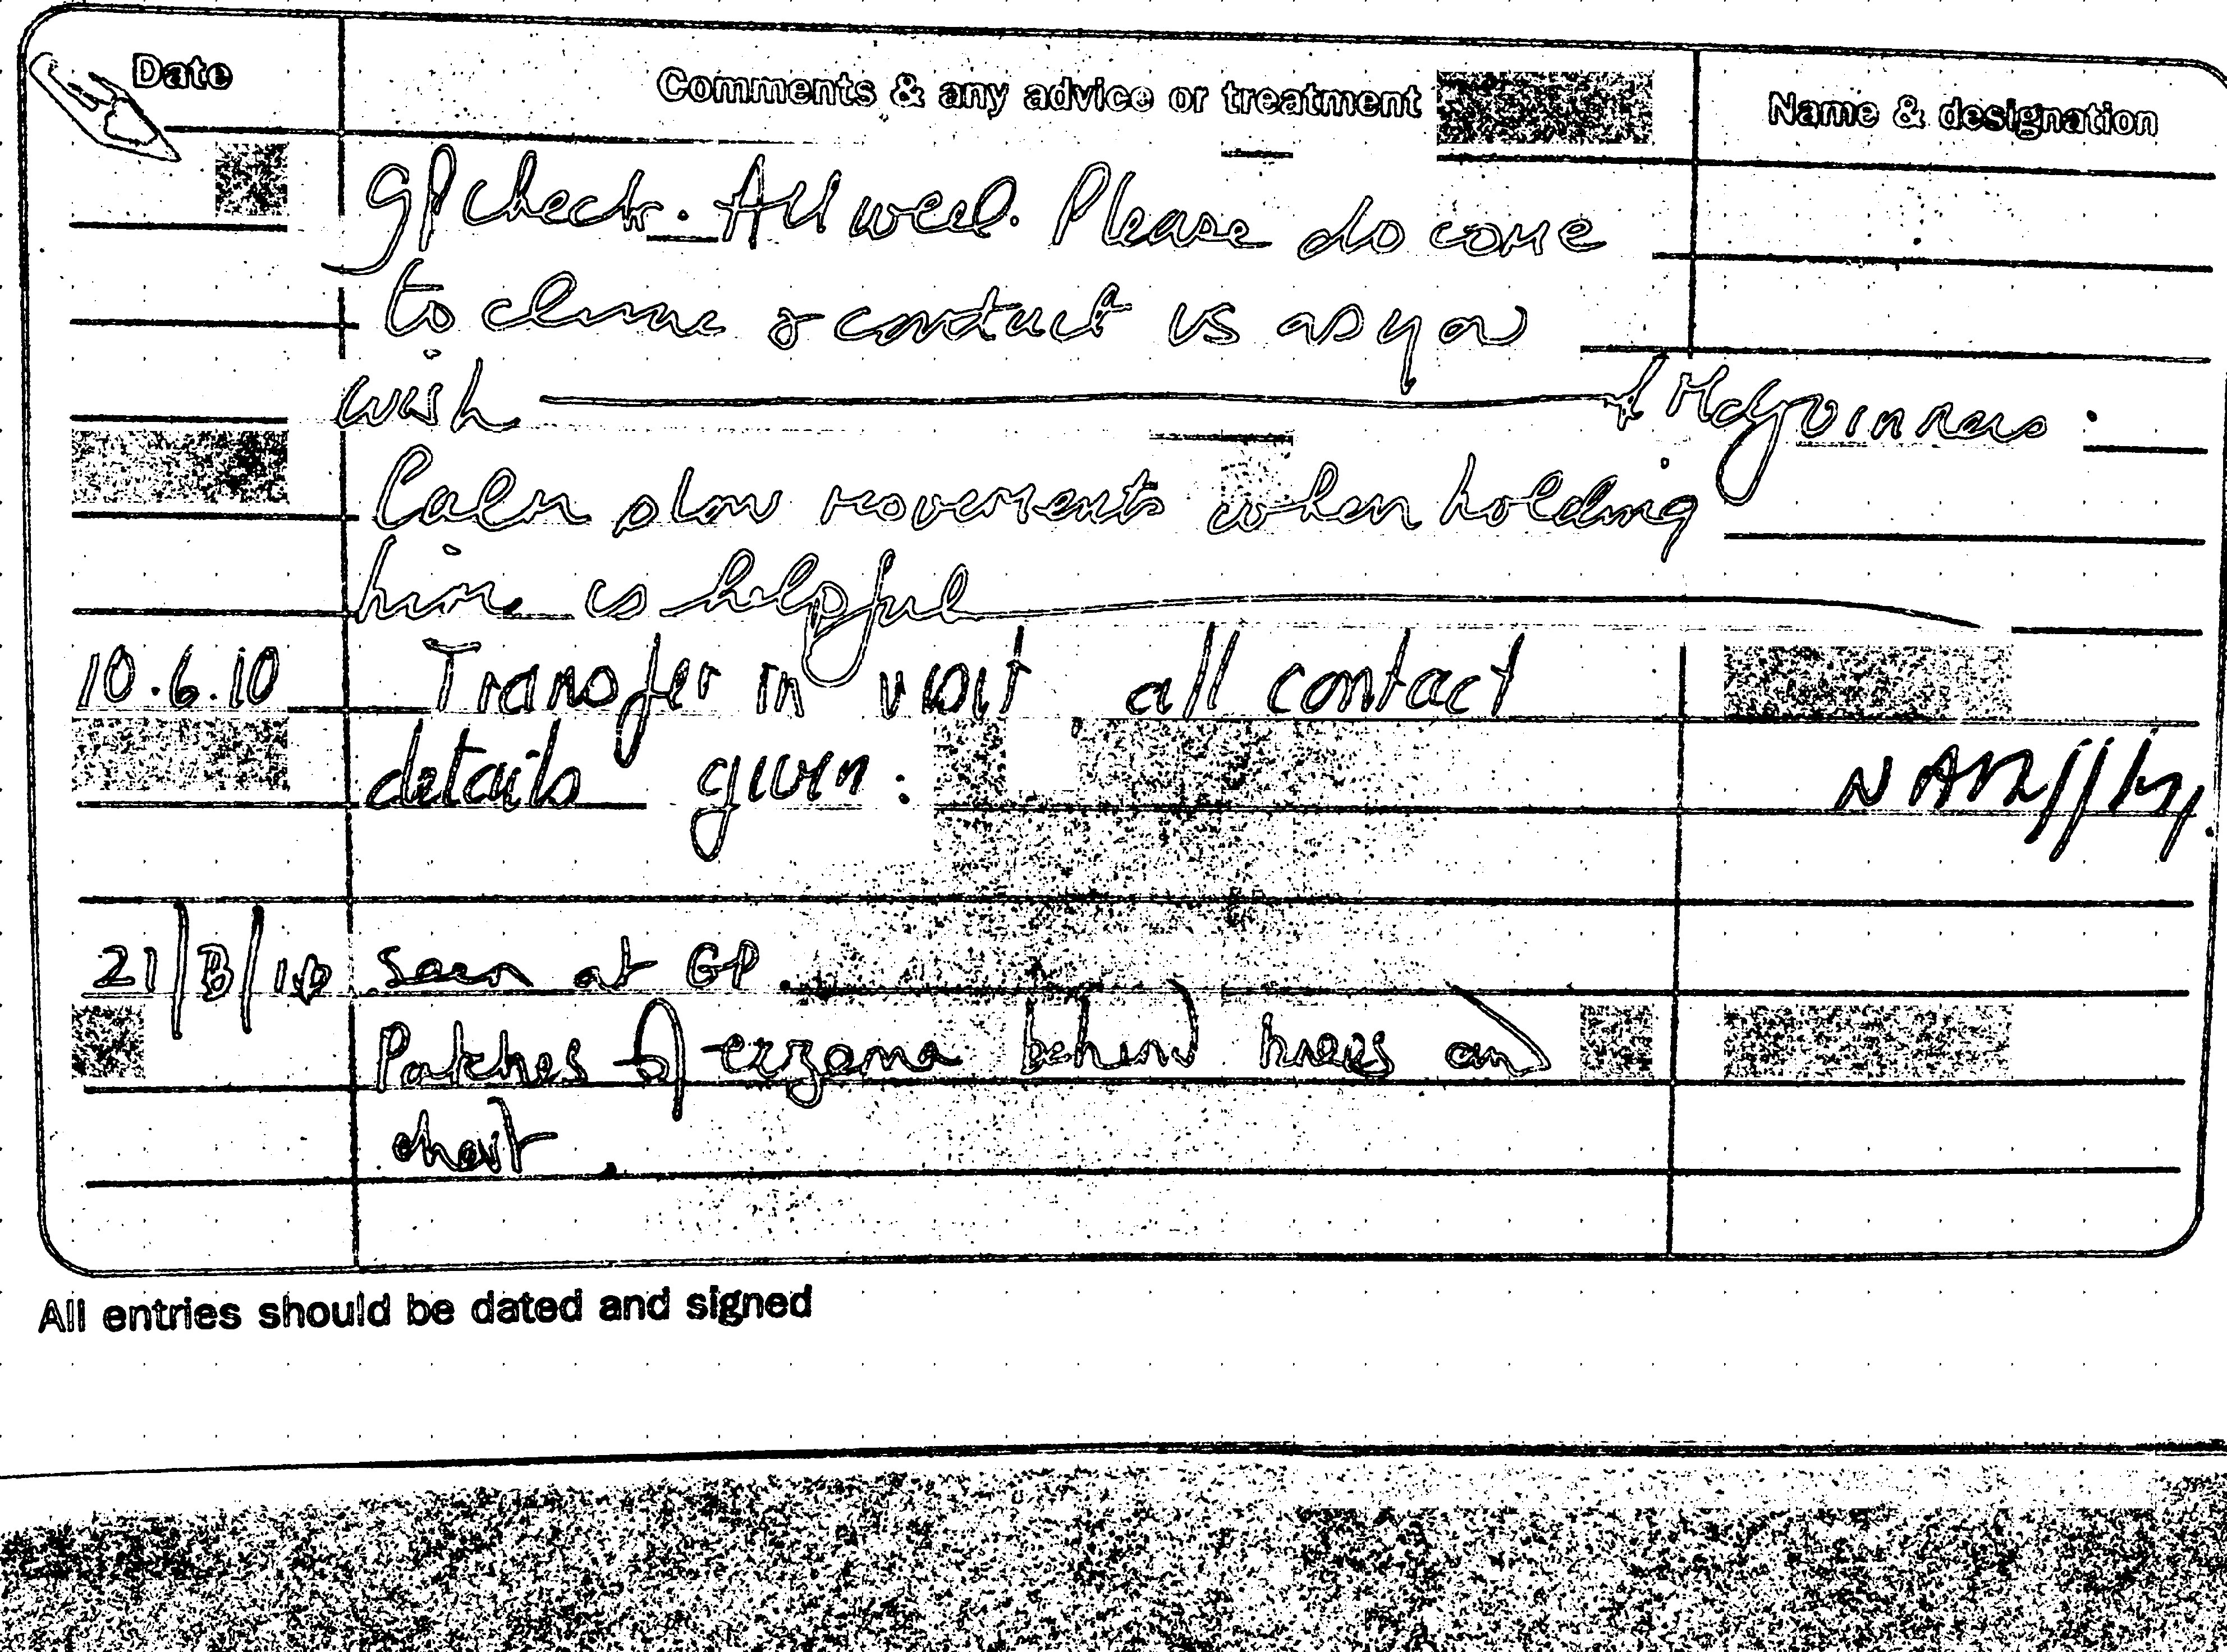 Date Comments & any advice or treatment Name & designation
GP check. All well. Please do come
to clinic & contact us as you
wish
Calm slow movements when holding
him is helpful
10.6.10 Transfer in visit all contact
details given.
seen at GP.
Patches of eczema behind knees and
chest.
All entries should be dated and signed